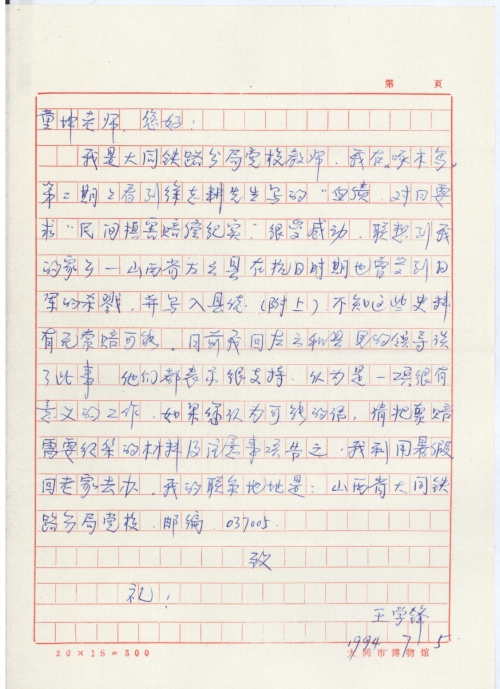 第 頁
童坤老师,您好:
我是大同铁路分局党校教师,我在"啄木鸟"
第二期上看到徐志耕先生写的"血债,对日要
求'民间损害赔偿纪实'"很受感动,联想到我
的家乡—山西省左云县在抗日时期也曾受到日
军的杀戮,并写入县统(附上)不知这些史料
有无索赔可能,目前我回左云和县里的领导谈
了此事 他们都表示很支持,认为是一项很有
意义的工作,如果您认为可能的话,请把索赔
需要收集的材料及注意事项告之,我利用暑假
回老家去办,我的联系地址是:山西省大同铁
路分局党校,邮编,037005.
致
礼!
王学锋
1994 7 5
20×15=300
大同市博物馆